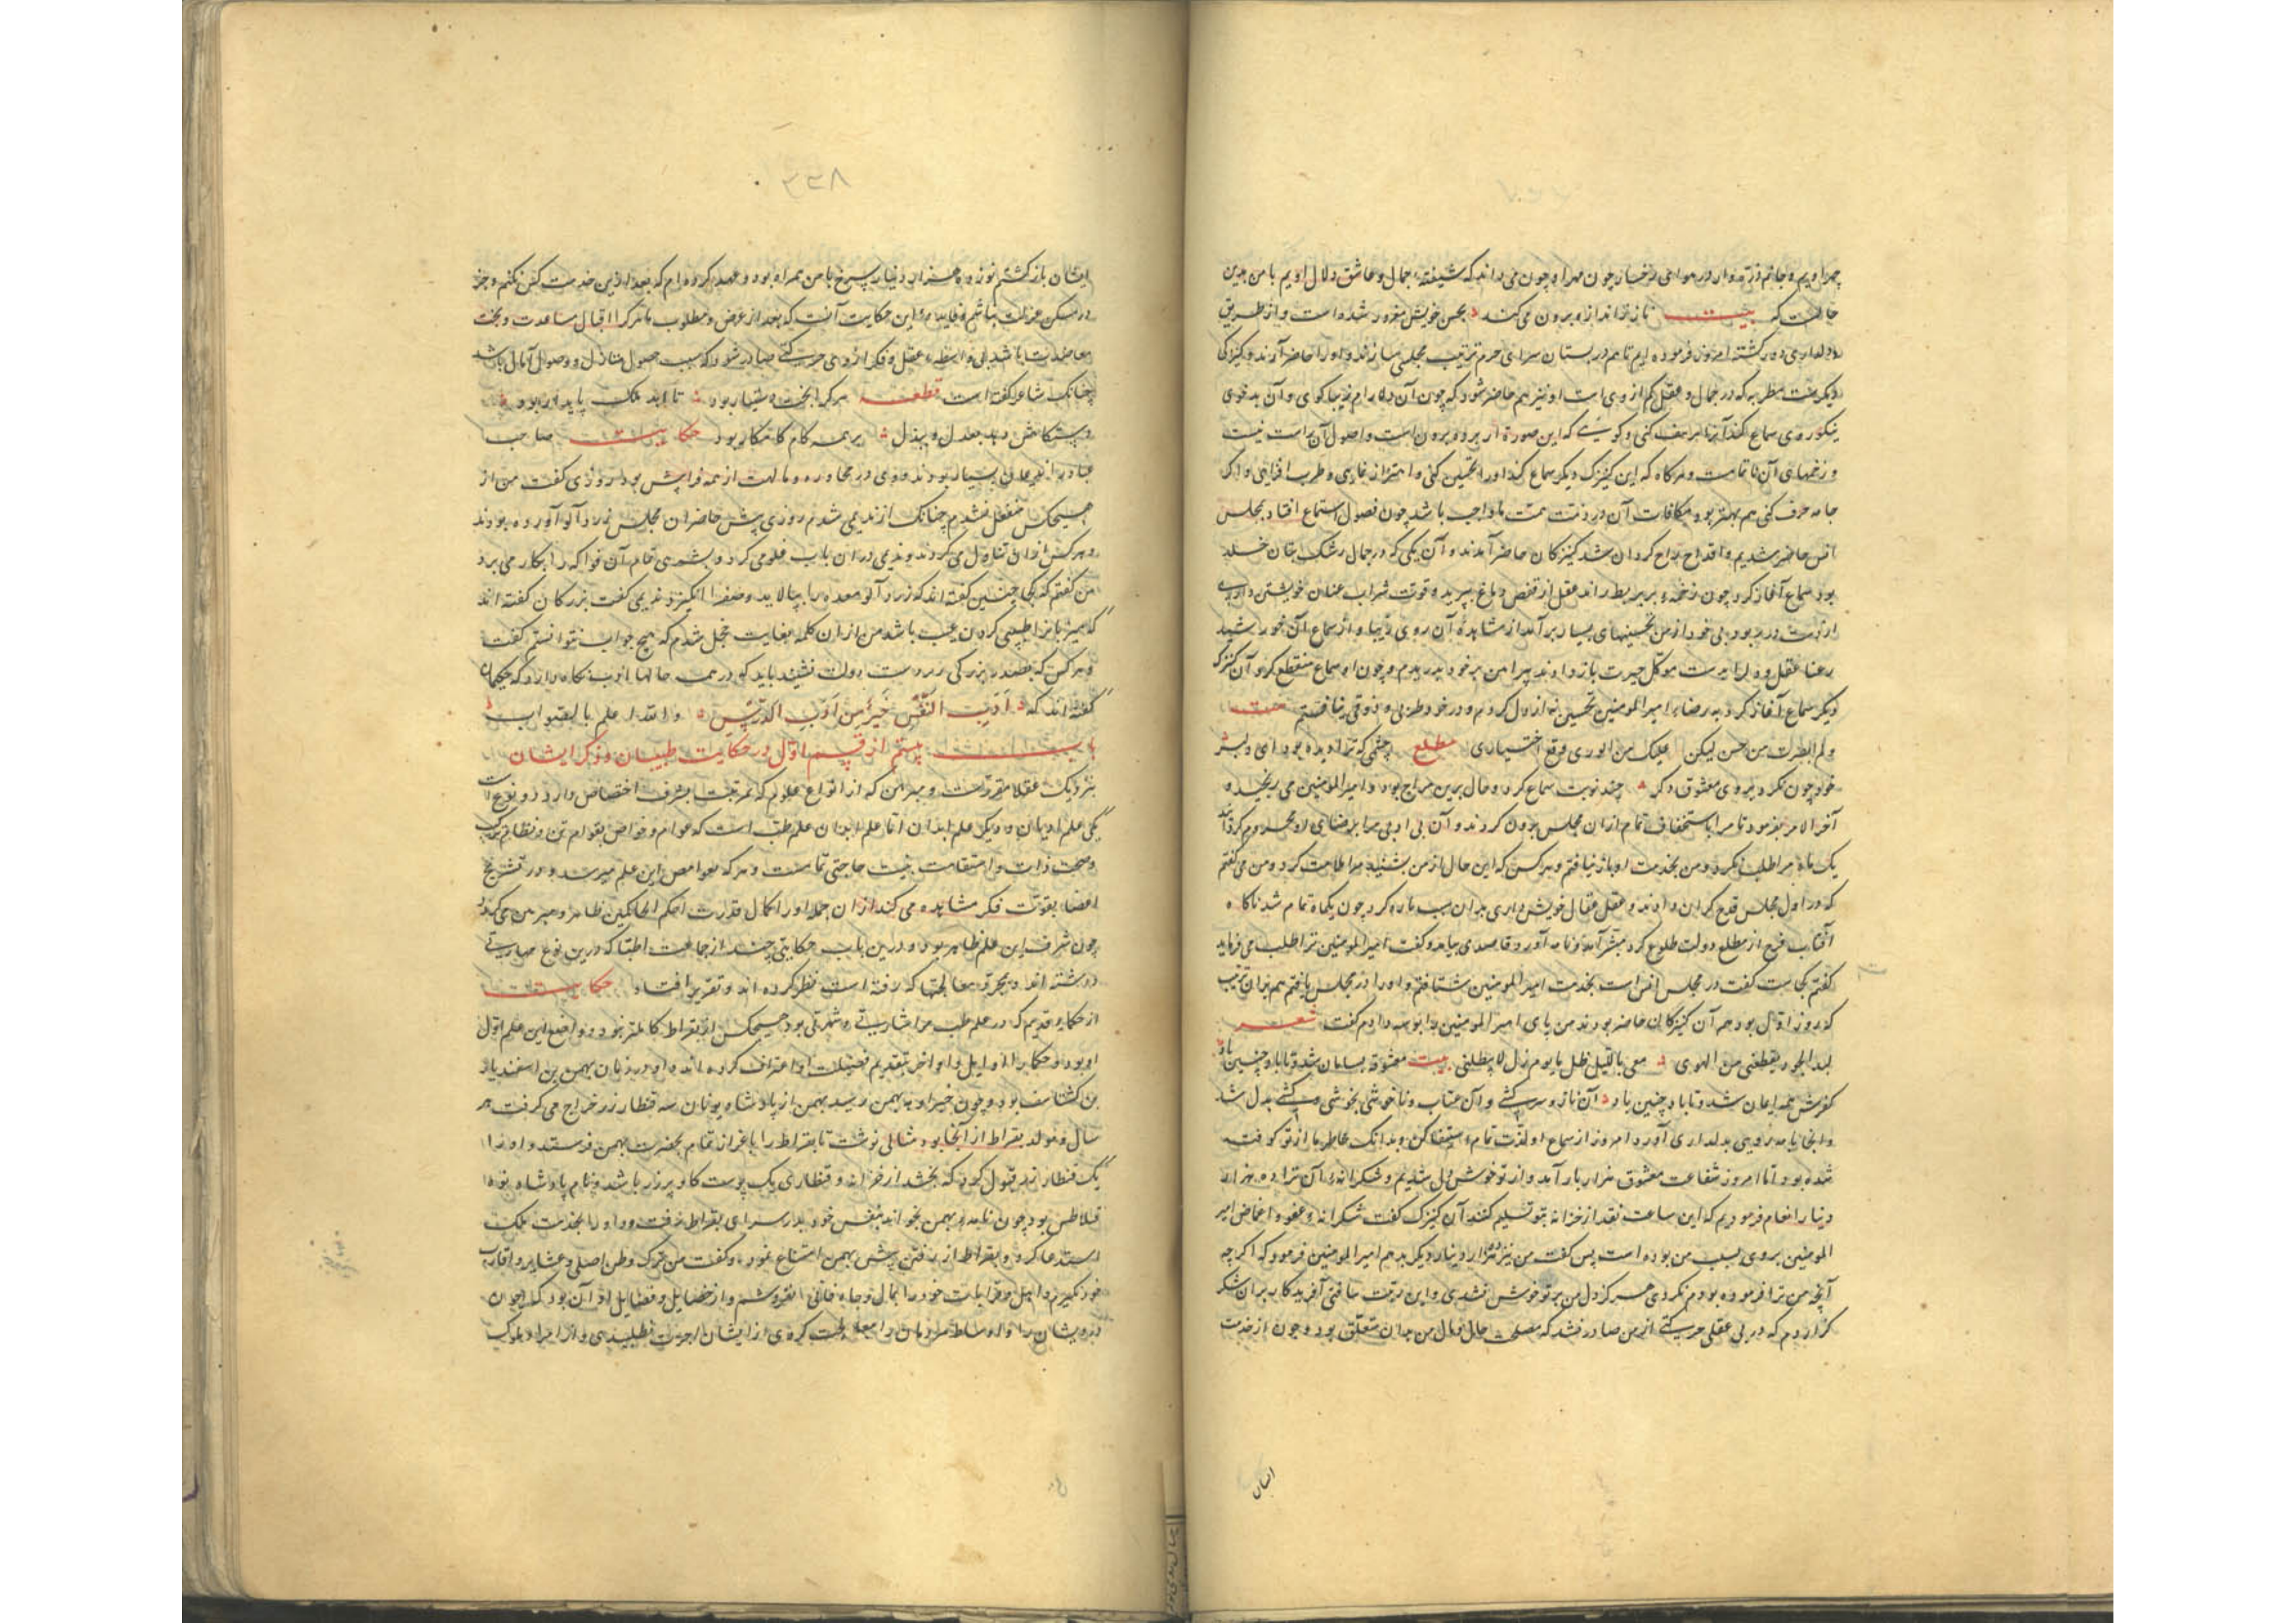 چهره اویم و جانم ذره وار در هوای رخسار چون مهر او چون می داند که شیفته جمال و عاشق دلال اویم با من بدین
حالت که بیت ناز ز اندازه برون می کند بحسن خویش مغرور شده است و از طریق
دلداری دور گشته امروز فرموده ایم تا هم در بستان سرای حرم ترتیب مجلسی سازند و او را حاضر آرند و کنیزکی
دیگرست مطربه که در جمال و عقل کم از وی است او نیز هم حاضر شود که چون آن دلارام زیبا کوی و آن بدخوی
نیکوروی سماع کند آنرا بر سخف کنی و گویی که این صورة از پرده برون است و اصول آن راست نیست
و زخمهای آن ناتمامست و هرگاه که این کنیزک دیگر سماع کند او را تحسین کنی و اهتزاز نمایی و طرب افزایی و اگر
جامه خرق کنی هم بهتر بود مکافات آن در ذمت همت ما واجب باشد چون فصول استماع افتاد بمجلس
انس حاضر شدیم و اقداح راح گردان شد کنیزکان حاضر آمدند و آن یکی که در جمال رشک بتان خلد
بود سماع آغاز کرد چون زخمه بر بربط راند عقل از قفص دماغ بپرید و قوت شراب عنان خویشتن داری
از دست در ربود بی خود از من تحسینهای بسیار برآمد از مشاهده آن روی زیبا و از سماع آن خورشید
رعنا عقل و دل را بدست موکل حیرت باز دادند پیراهن بر خود بدریدم و چون او سماع منقطع کرد آن کنیزک
دیگر سماع آغاز کرد به رضاء امیر المومنین تحسین نه از دل کردم و در خود طربی و ذوقی نیافتم بیت
ولم ابصرت من حسن لیکن علیک من الوری وقع اختیاری مطلع چشمی که ترا دیده بود ای دلبر
خود چون نگرد بروی معشوق دگر چند نوبت سماع کرد و حال برین مزاج بود و امیر المومنین می رنجید و
آخر الامر بفرمود تا مرا باستخفاف تمام از ان مجلس برون کردند و آن بی ادبی مرا بر ضیای او محروم گردانید
یک ماه مرا طلب نکرد و من بخدمت او بار نیافتم و هر کس که این حال از من بشنید مرا ملامت کرد و من می گفتم
که در اول مجلس قدح گران دادند و عقل فعال خویش داری بدان سبب پاره کرد چون یکماه تمام شد ناگاه
آفتاب فرج از مطلع دولت طلوع کرد مبشر آمد و نامه آورد قاصدی بیامد و گفت امیر المومنین ترا طلب می فرماید
گفتم کجاست گفت در مجلس انس است بخدمت امیر المومنین شتافتم و او را در مجلس یافتم هم بران ترتیب
که روز اول بود همه آن کنیزکان حاضر بودند من پای امیر المومنین را بوسه دادم گفت شعر
معشوقه بسامان شد تا باد چنین باد
کفرش همه ایمان شد تا باد چنین باد آن ناز و سرکشی و آن عتاب و ناخوشی بخوشی و کشی بدل شد
و انجا یار به زویی بدلداری آورد امروز از سماع او لذت تمام استیفا کن و بدانک خاطر ما از تو کوفته
شده بود اما امروز شفاعت معشوق هزار بار آمد و از تو خوش دل شدیم و شکرانه آن ترا ده هزار
دینار انعام فرمودیم که این ساعت نقد از خزانه بتو تسلیم کنند آن کنیزک گفت شکرانه عفو و اغماض امیر
المومنین بروی بسبب من بوده است پس گفت من نیز ده هزار دینار دیگر بدهم امیر المومنین فرمود که اگر چه
آنچه من ترا فرموده بودم نکردی هرگز دل من بر تو خوش نشدی و این رحمت حق آفریدگار بران شکر
گزاردم که در بی عقلی حرکتی از من صادر نشد که مصلحت حال و مال من بدان متعلق بود و چون از خدمت
ایشان
۳۳۸
ایشان بازگشتم نوزده هزار دینار سرخ با من همراه بود و عهد کرده ام که بعد ازین خدمت کس نکنم و جز
در مسکن عزلت نباشم و فایده این حکایت آنست که بعد از عرض مطلوب ما هر که را اقبال مساعدت و بخت
معاضدت باشد بی واسطه عقل و فکر از وی حرکتی صادر شود که سبب حصول منازل و وصول آمال باشد
چنانک شاعر گفته است قطعه هر که را بخت هشیار بود تا ابد ملک پایدار بود
دستگاهش دهد بعدل و ببذل بر همه کام کامگار بود حکایت صاحب
عباد را ندیمان بسیار بودند و وی در محاوره و مالهت از همه فرا پیش بود روزی گفت من از
هیچکس منفعل نشدم چنانک از ندیمی شدم روزی پیش حاضران مجلس زردآلو آورده بودند
و هر کس از ان تناول می کردند و ندیمی در ان باب غلو می کرد و بشرهی تمام آن فواکه را بکار می برد
من گفتم که حکما چنین گفته اند که زردآلو معده را بیالاید و صفرا انگیزد ندیمی گفت بزرگان گفته اند
که میزبان را طبیبی کردن عیب باشد من از ان کلمه بغایت خجل شدم که هیچ جواب نتوانستم گفت
و هر کس که بر صدر بزرگی و دست دولت نشیند باید که در همه حالها ادب نگاه دارد که حکما
گفته اند که ادب النفس خیر من ادب الدرس و الله اعلم بالصواب
باب بیستم از قسم اول در حکایت طبیبان و ذکر ایشان
بنزدیک عقلا مقررست و مبرهن که از انواع علوم که بمرتبت شرف اختصاص دارد دو نوع است
یکی علم ادیان و دیگر علم ابدان اما علم ابدان علم طب است که عوام و خواص بقوام تن و نظام ترکیب
وصحت ذات و استقامت بنیت حاجتی تمامست و هر که بغوامض این علم میرسد و در تشریح
اعضا بقوت فکر مشاهده می کند از ان جمله او را کمال قدرت احکم الحاکمین ظاهر و مبرهن می گردد
چون شرف این علم ظاهر بود و درین باب حکایتی چند از جماعت اطبا که درین نوع مهارتی
داشته اند و بحرقه معالجتها که رفته است نظر کرده اند و تقریر افتاد حکایت
از حکماء قدیم که در علم طب مرا مشار الیه و شهرتی بود هیچکس از بقراط کاملتر نبود و واضع این علم اول
او بود و حکما را اوایل و اواخر بتقدیم فضیلت او اعتراف کرده اند و او در زمان بهمن بن اسفندیار
بن گشتاسف بود و چون خبر او به بهمن رسید بهمن از پادشاه یونان سه قنطار زر خراج می گرفت هر
سال و مولد بقراط از آنجا بود مثالی نوشت تا بقراط را باعزاز تمام بحضرت بهمن فرستد و او را
یک قنطار زر قبول کرد که بخشد از خزانه و قنطاری یک پوست گاو پر زر باشد و نام پادشاه بوده
فیلاطس بود چون نامه بهمن بخواند بنفس خود بدر سرای بقراط رفت و او را بخدمت ملک
استدعا کرد و بقراط از رفتن پیش بهمن امتناع نمود و گفت من ترک وطن اصلی و عشایر و اقارب
خود نگیرم و اهل و قرابات خود را بمال و جاه فانی نفروشم و از خصایل و فضایل او آن بود که چون
درویشان را و اوساط مردمان را معالجت کردی از ایشان اجرت نطلبیدی و از امرا و ملوک